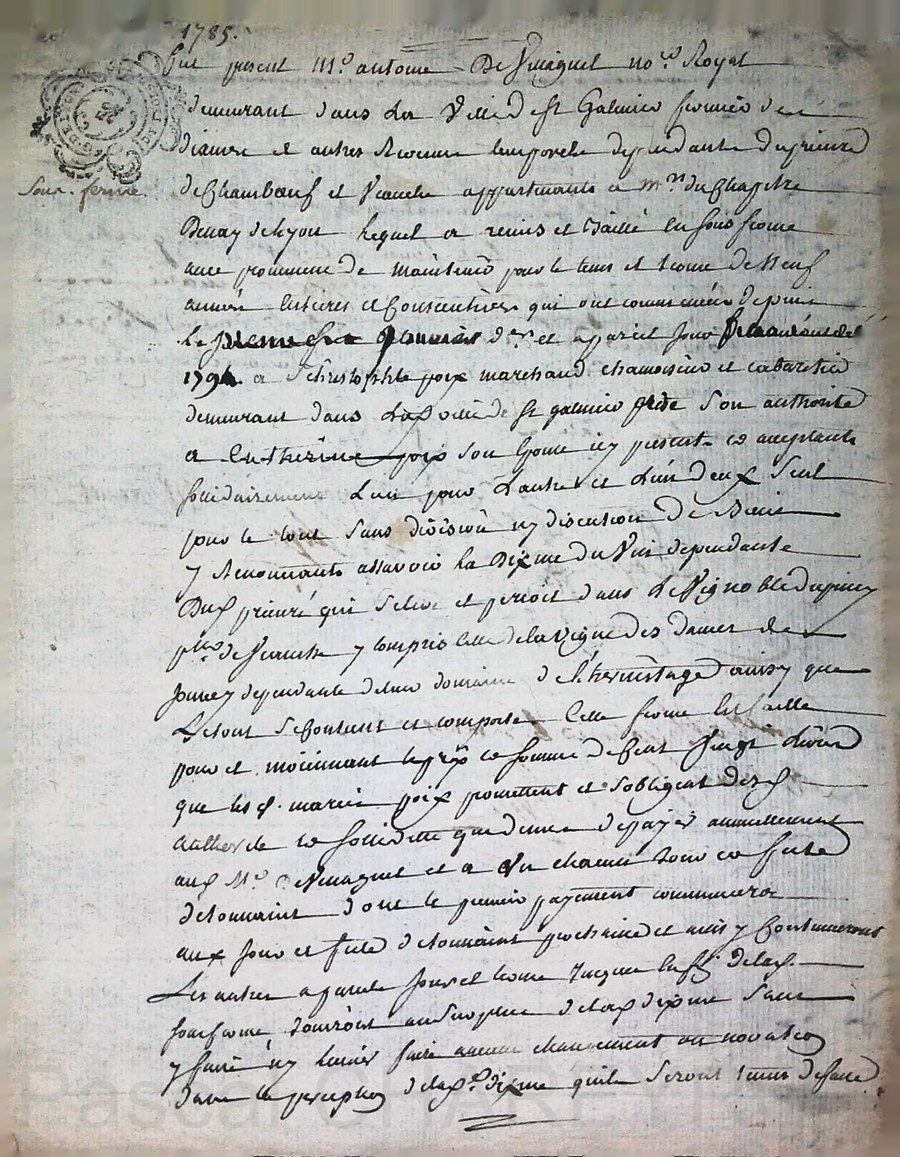 1785.
Fut present Me antoine De Vinagnet nore Royal
demeurant dans La Ville de st Galmier fermier des
dixmes et autres Revenus temporels dependants du prieuré
Sous-ferme
de Chambœuf et Veauche appartenants a mrs du Chapitre
Denay de Lyon Lequel a remis et Baillé en sous ferme
avec promesse de maintenir pour le tems et terme de Neuf
années Entieres et Consecutives qui ont commencées depuis
Le premier janvier der et a pareil jour finiront de
1794. a Christophle poix marchand chamoisier et cabaretier
demeurant dans Lad ville de st galmier de son authorité
a Catherine poix son Epouse icy presents ce acceptants
solidairement L'un pour L'autre et L'un d'eux seul
pour le tout sans division ny discution de Biens
y Renonceants assavoir La Dixme du Vin dependante
Dud prieuré qui se leve et perçoit dans Le Vignoble du pinay
psse de Veauche y compris Celle de la Vigne des Dames de
Jourcey dependante de leur domaine de l'hermitage ainsy que
Le tout se Contient et comporte Cette ferme En faitte
pour et moiennant le prix et somme de Cent Vingt Livres
que les d. mariés poix promettent et s'obligent
de la soliditte que dessus de payer annuellement
aud Me De Vinagnet et a chacun jour et feste
de toussaint dont le premier payement commencera
aux jour et feste de toussaint prochaine et ainsy Continueront
Les autres a pareils jours et terme Jusques En fin de lad.
sousferme Jouiront au Surplus de lad dixme sans
y faire n'y laisser faire aucun changement ou novation
dans la perception de lad. dixme qu'ils seront tenus de faire